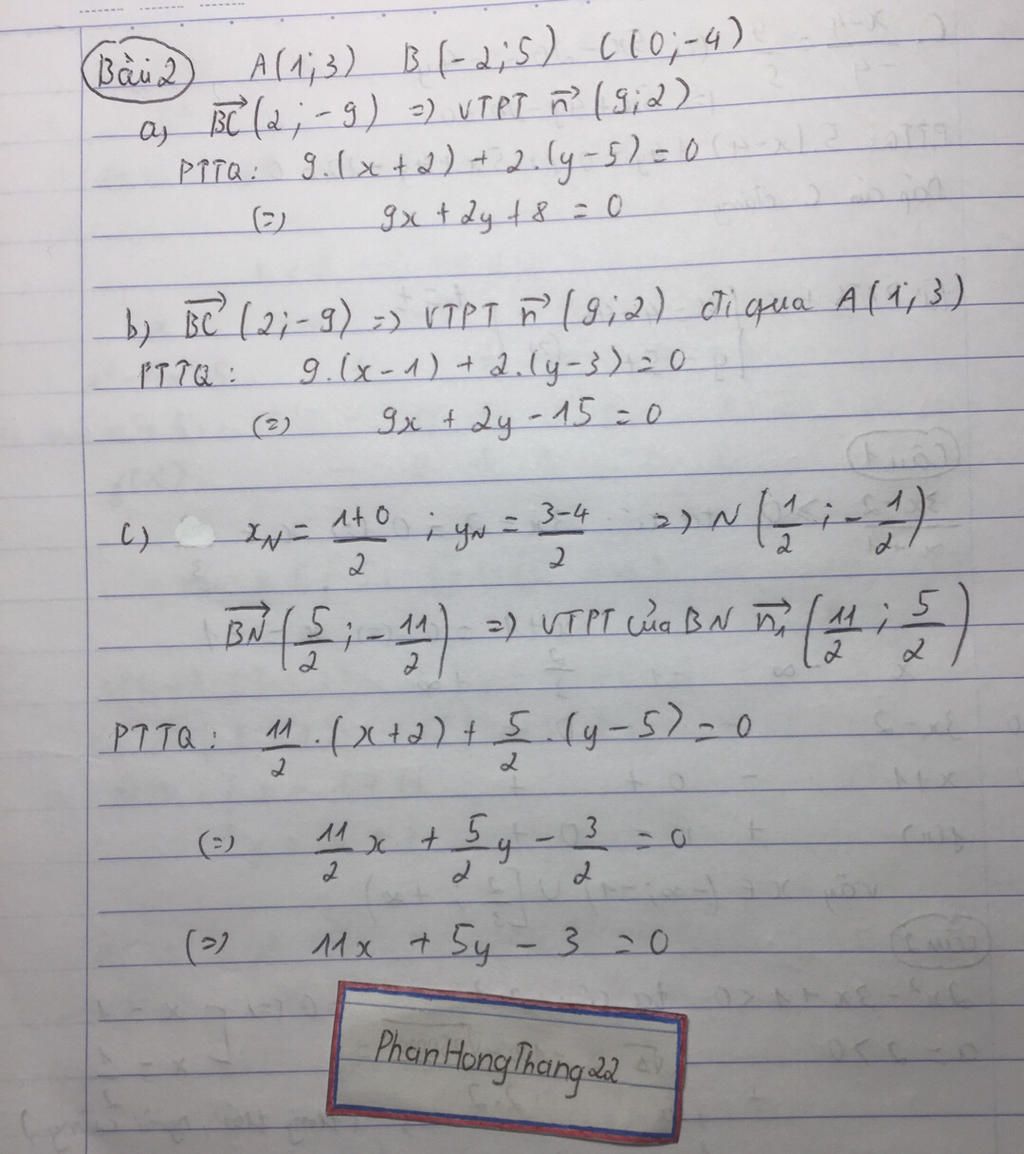 Bài 2 A(1;3) B(-2;5) C(0;-4)
a, $\overrightarrow{BC}$(2;-9) => VTPT $\overrightarrow{n}$(9;2)
PTTQ: 9.(x+2) + 2.(y-5) = 0
(=) 9x + 2y + 8 = 0
b) $\overrightarrow{BC}$(2;-9) => VTPT $\overrightarrow{n}$(9;2) đi qua A(1;3)
PTTQ: 9.(x-1) + 2.(y-3) = 0
(=) 9x + 2y - 15 = 0
c) $x_N = \frac{1+0}{2}$ ; $y_N = \frac{3-4}{2}$ => N$\left(\frac{1}{2};-\frac{1}{2}\right)$
$\overrightarrow{BN}\left(\frac{5}{2};-\frac{11}{2}\right)$ => VTPT của BN $\overrightarrow{n_1}\left(\frac{11}{2};\frac{5}{2}\right)$
PTTQ: $\frac{11}{2}$.(x+2) + $\frac{5}{2}$.(y-5) = 0
(=) $\frac{11}{2}$x + $\frac{5}{2}$y - $\frac{3}{2}$ = 0
(=) 11x + 5y - 3 = 0
PhanHongThang22